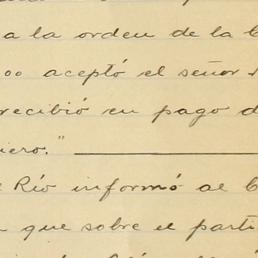 a la orden de la
oo aceptó el señor
recibió en pago d
iero."
Río informó al C
que sobre el parti